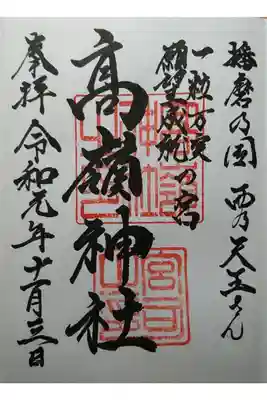 播磨乃国 西乃天王さん
一粒万倍
願望成就の宮
高嶺神社
奉拝 令和元年十一月三日